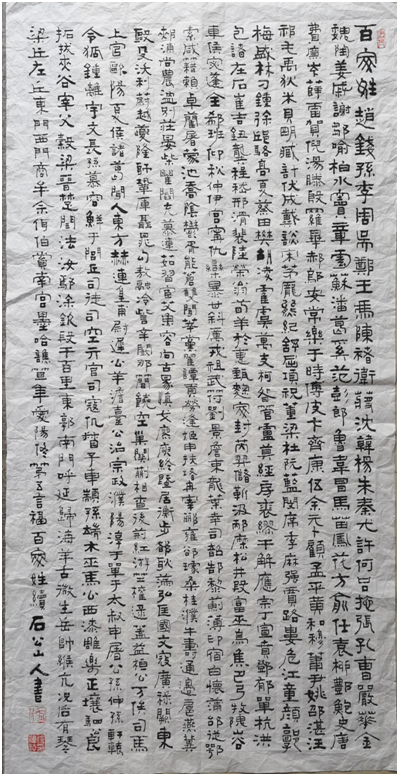 百家姓趙錢孫李周吳鄭王馮陳褚衛蔣沈韓楊朱秦尤許何呂施張孔曹嚴華金
魏陶姜戚謝鄒喻柏水竇章雲蘇潘葛奚范彭郎魯韋昌馬苗鳳花方俞任袁柳酆鮑史唐
費廉岑薛雷賀倪湯滕殷羅畢郝鄔安常樂于時傅皮卞齊康伍余元卜顧孟平黃和穆蕭尹姚邵湛汪
祁毛禹狄米貝明臧計伏成戴談宋茅龐熊紀舒屈項祝董梁杜阮藍閔席季麻強賈路婁危江童顏郭
梅盛林刁鍾徐邱駱高夏蔡田樊胡凌霍虞萬支柯昝管盧莫經房裘繆干解應宗丁宣賁鄧郁單杭洪
包諸左石崔吉鈕龔程嵇邢滑裴陸榮翁荀羊於惠甄麴家封芮羿儲靳汲邴糜松井段富巫烏焦巴弓牧隗山谷
車侯宓蓬全郗班仰秋仲伊宮甯仇欒暴甘鈄厲戎祖武符劉景詹束龍葉幸司韶郜黎薊薄印宿白懷蒲邰從鄂
索咸籍賴卓藺屠蒙池喬陰鬱胥能蒼雙聞莘黨翟譚貢勞逄姬申扶堵冉宰酈雍郤璩桑桂濮牛壽通邊扈燕冀
郟浦尚農溫別莊晏柴瞿閻充慕連茹習宦艾東容向古易慎戈廖庾終暨居衡步都耿滿弘匡國文寇廣祿闕東
歐殳沃利蔚越夔隆師鞏厙聶晁勾敖融冷訾辛闞那簡饒空巢關蒯相查後荊紅游竺權逯蓋益桓公万俟司馬
上官歐陽夏侯諸葛聞人東方赫連皇甫尉遲公羊澹臺公冶宗政濮陽淳于單于太叔申屠公孫仲孫軒轅
令狐鍾離宇文長孫慕容鮮于閭丘司徒司空亓官司寇仉督子車顓孫端木巫馬公西漆雕樂正壤駟公良
拓拔夾谷宰父穀梁晉楚閆法汝鄢涂欽段干百里東郭南門呼延歸海羊舌微生岳帥緱亢況后有琴
梁丘左丘東門西門商牟佘佴伯賞南宮墨哈譙笪年愛陽佟第五言福百家姓續 石公山人書